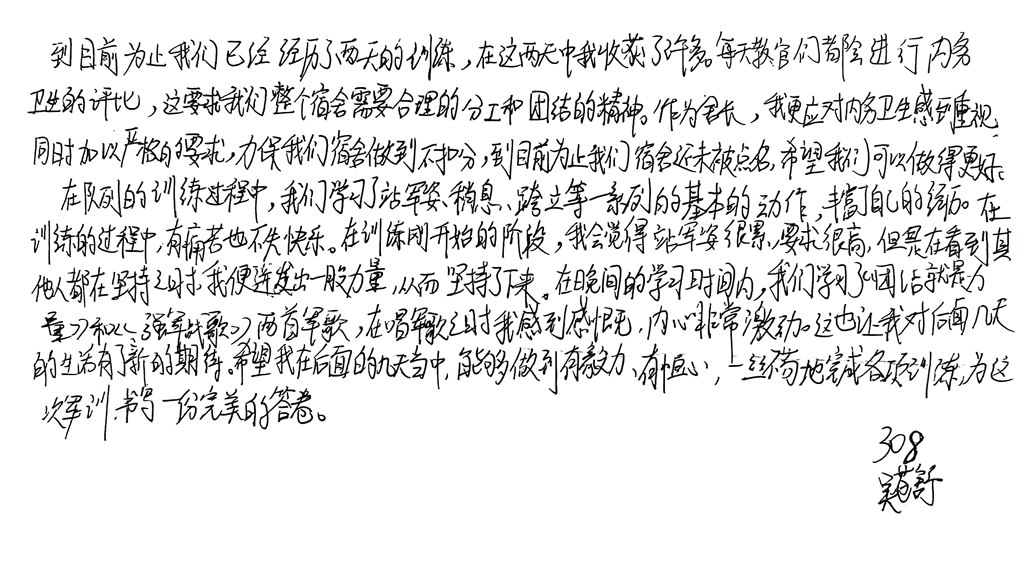 到目前为止我们已经经历了两天的训练,在这两天中我收获了许多。每天教官们都会进行内务
卫生的评比,这要求我们整个宿舍需要合理的分工和团结的精神。作为舍长,我更应对内务卫生感到重视,
同时加以严格的要求,力保我们宿舍做到不扣分,到目前为止我们宿舍还未被点名,希望我们可以做得更好。
在队列的训练过程中,我们学习了站军姿、稍息、跨立等一系列的基本的动作,丰富了自己的经历。在
训练的过程中,有痛苦也不失快乐。在训练刚开始的阶段,我会觉得站军姿很累,要求很高,但是在看到其
他人都在坚持之时,我便迸发出一股力量,从而坚持了下来。在晚间的学习时间内,我们学习了《团结就是力
量》和《强军战歌》两首军歌,在唱军歌之时我感到感慨,内心非常激动。这也让我对后面几天
的生活有了新的期待。希望我在后面的几天当中,能够做到有毅力、有恒心,一丝不苟地完成各项训练,为这
次军训书写一份完美的答卷。
308
吴舒